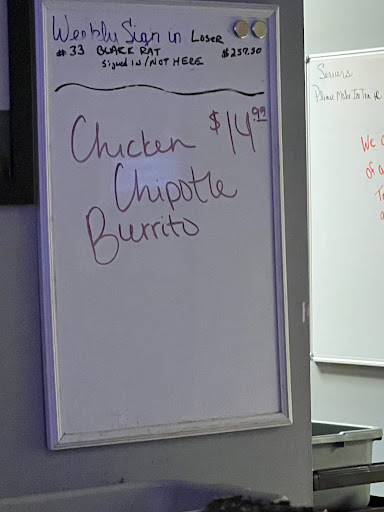 Weekly Sign in Loser
# 33 BLACK RAT $257.50
Signed IN / NOT HERE
Chicken $14.99
Chipotle
Burrito
Servers
Please Make
We
of